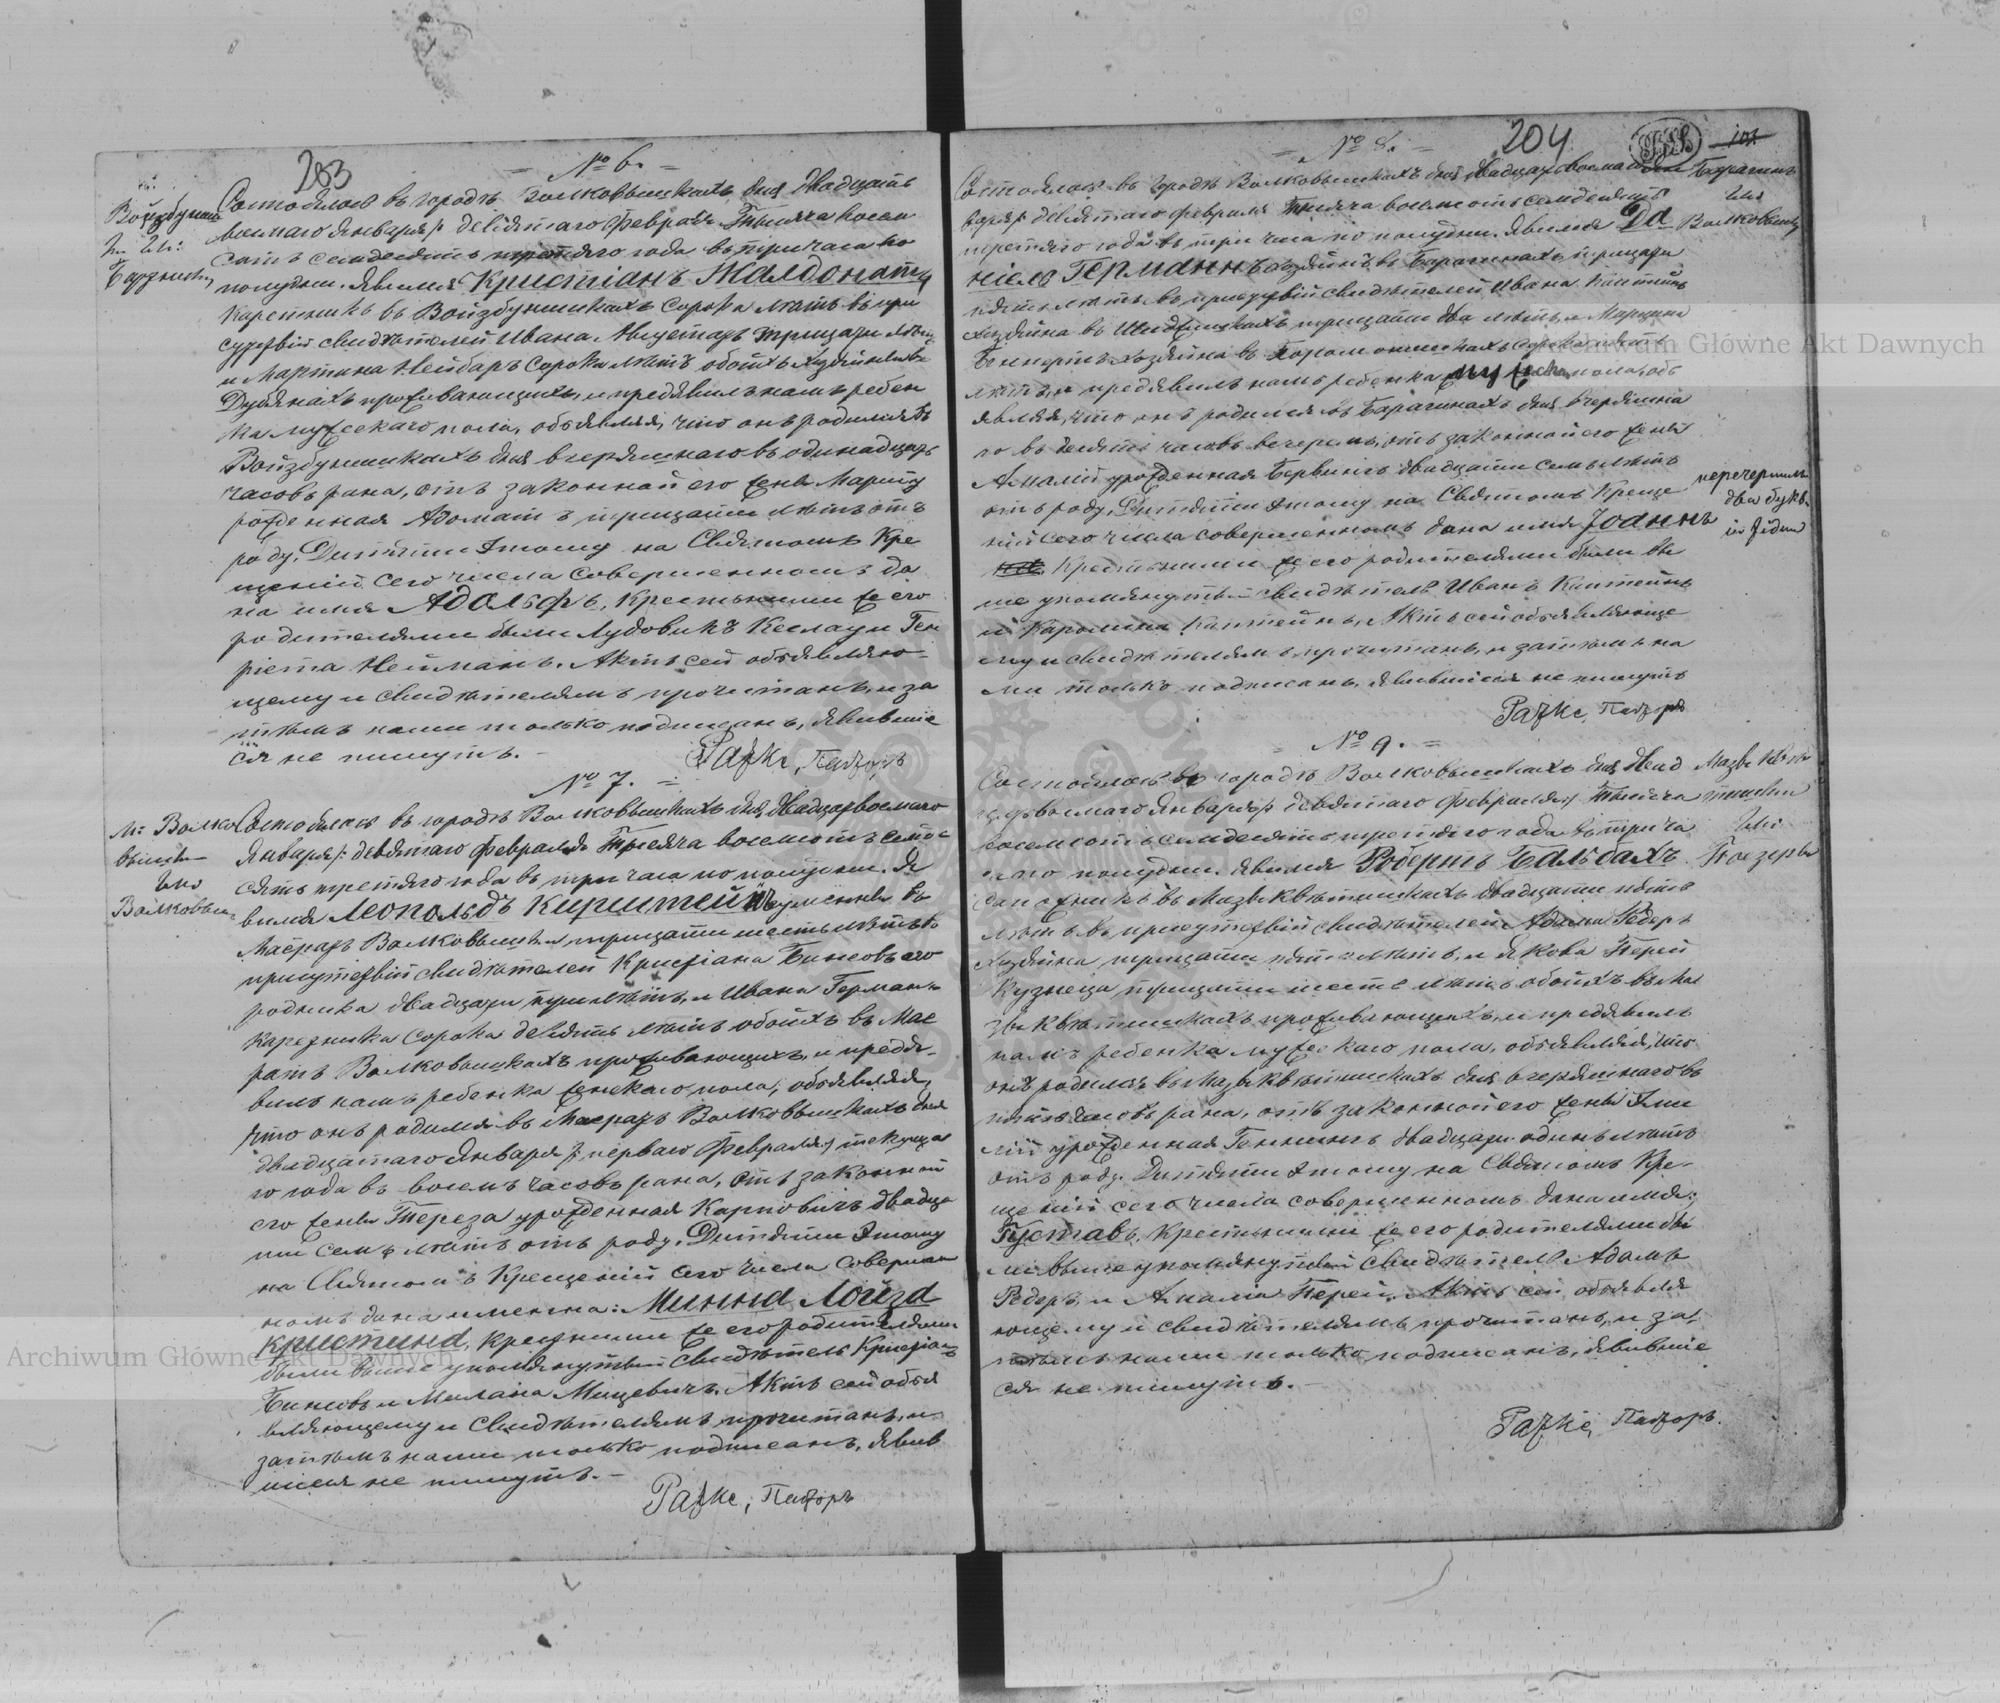 283
№ 6.
Войзбуниш
Состоялось въ городѣ Волковышкахъ дня двадцать
восмаго Января/: девятаго Февраля Тысяча восем
сотъ семдесятъ третяго года въ три часа по
полудни. Явился Кристіанъ Жалдонатъ
Каретникъ въ Войзбунишкахъ сорока лѣтъ въ при
сутствіи свидѣтелей Ивана тридцати лѣтъ
и Мартина Нейбаръ сорока лѣтъ обоихъ хозяиновъ
проживающихъ, и предявилъ намъ ребен
ка мужескаго пола, объявляя, что онъ родился въ
Войзбунишкахъ дня вчеряшнаго въ одинадцать
часовъ рана, отъ законной его жены Маріи у
рожденная Адомаитъ тридцати лѣтъ отъ
роду. Дитяти Этому на Святомъ Кре
щеніи сего числа совершенномъ да
на имя Адольфъ, Крестными же его
родителями были Лудовикъ Кеслау и Ген
ріета Нейманъ. Актъ сей объявляю-
щему и свидѣтелямъ прочитанъ, и за
тѣмъ нами только подписанъ, явившіе
ся не пишутъ. -
Ратке, Пасторъ
№ 7.
М: Волко
вышки
Волковыш
Состоялось въ городѣ Волковышкахъ дня двадцать восмаго
Января/: девятаго Февраля Тысяча восемсотъ семде
сятъ третяго года въ три часа по полудни. Я
вился Леопольдъ Кирштейнъ въ
Маіоратъ Волковышки тридцати шесть лѣтъ въ
присутствіи свидѣтелей Кристіана Бинсовъ его
родника двадцати три лѣтъ, и Ивана Германъ
Каретника сорока девять лѣтъ обоихъ въ Маіо
ратъ Волковышкахъ проживающихъ, и предя-
вилъ намъ ребенка женскаго пола, объявляя,
что онъ родился въ Маіоратъ Волковышкахъ дня
двадцатаго Января /: перваго Февраля:/ текуща
го года въ восемъ часовъ рана, отъ законной
его жены Тереза урожденная Карповичъ двадца
ти семъ лѣтъ отъ роду. Дитяти Этому
на Святомъ Крещеніи сего числа совершен
номъ дана имена: Минна Лоиза
Кристина, Крестными же его родителями
были выше упомянутый свидѣтель Кристіанъ
Бинсовъ и Милана Мицевичъ. Актъ сей объя
вляющему и свидѣтелямъ прочитанъ, и
затѣмъ нами только подписанъ, явив
шіеся не пишутъ. -
Ратке, Пасторъ
№ 8.
204
Состоялось въ городѣ Волковышкахъ дня двадцать восмаго
Января/: девятаго Февраля Тысяча восемсотъ семдесятъ
третяго года въ три часа по полудни. Явился Да
ніель Германнъ хозяинъ въ Барагинахъ тридцати
пять лѣтъ въ присутствіи свидѣтелей Ивана Каптейнъ
хозяина въ тридцати два лѣтъ, и Мартина
хозяина въ сорока пять
лѣтъ, и предявилъ намъ ребенка мужеска пола, объ
являя, что онъ родился въ Барагинахъ дня вчеряшна
го въ десяти часовъ вечеромъ, отъ законной его жены
Амаліи урожденная Бервингъ двадцати семъ лѣтъ
отъ роду. Дитяти Этому на Святомъ Креще
ніи сего числа совершенномъ дана имя Іоаннъ
Крестными же его родителями были вы
ше упомянутый свидѣтель Иванъ Каптейнъ
и Каролина Каптейнъ, Актъ сей объявляюще
му и свидѣтелямъ прочитанъ, и затѣмъ на
ми только подписанъ, явившіеся не пишутъ
Волковышк
два букв
Ратке, Пасторъ
№ 9.
Состоялось въ городѣ Волковышкахъ дня двад
цать восмаго Января/: девятаго Февраля:/ Тысяча
восемсотъ семдесятъ третяго года въ три ча
са по полудни. Явился Робертъ Бальбахъ
въ Мазвквѣтишкахъ двадцати пять
лѣтъ въ присутствіи свидѣтелей Адама Редеръ
хозяина тридцати пять лѣтъ, и Якова Перей
Кузнеца тридцати шесть лѣтъ обоихъ въ Ма
звквѣтишкахъ проживающихъ, и предявилъ
намъ ребенка мужескаго пола, объявляя, что
онъ родился въ Мазвквѣтишкахъ дня вчеряшнаго въ
пять часовъ рана, отъ законной его жены Эми
ліи урожденная Геннингъ двадцати одинъ лѣтъ
отъ роду. Дитяти Этому на Святомъ Кре-
щеніи сего числа совершенномъ дана имя:
Густавъ, Крестными же его родителями бы
ли выше упомянутый свидѣтель Адамъ
Редеръ и Амалія Перей, Актъ сей объявля
ющему и свидѣтелямъ прочитанъ, и за
тѣмъ нами только подписанъ, явившіе
ся не пишутъ. -
Ратке, Пасторъ.
Archiwum Główne Akt Dawnych
Archiwum Główne Akt Dawnych